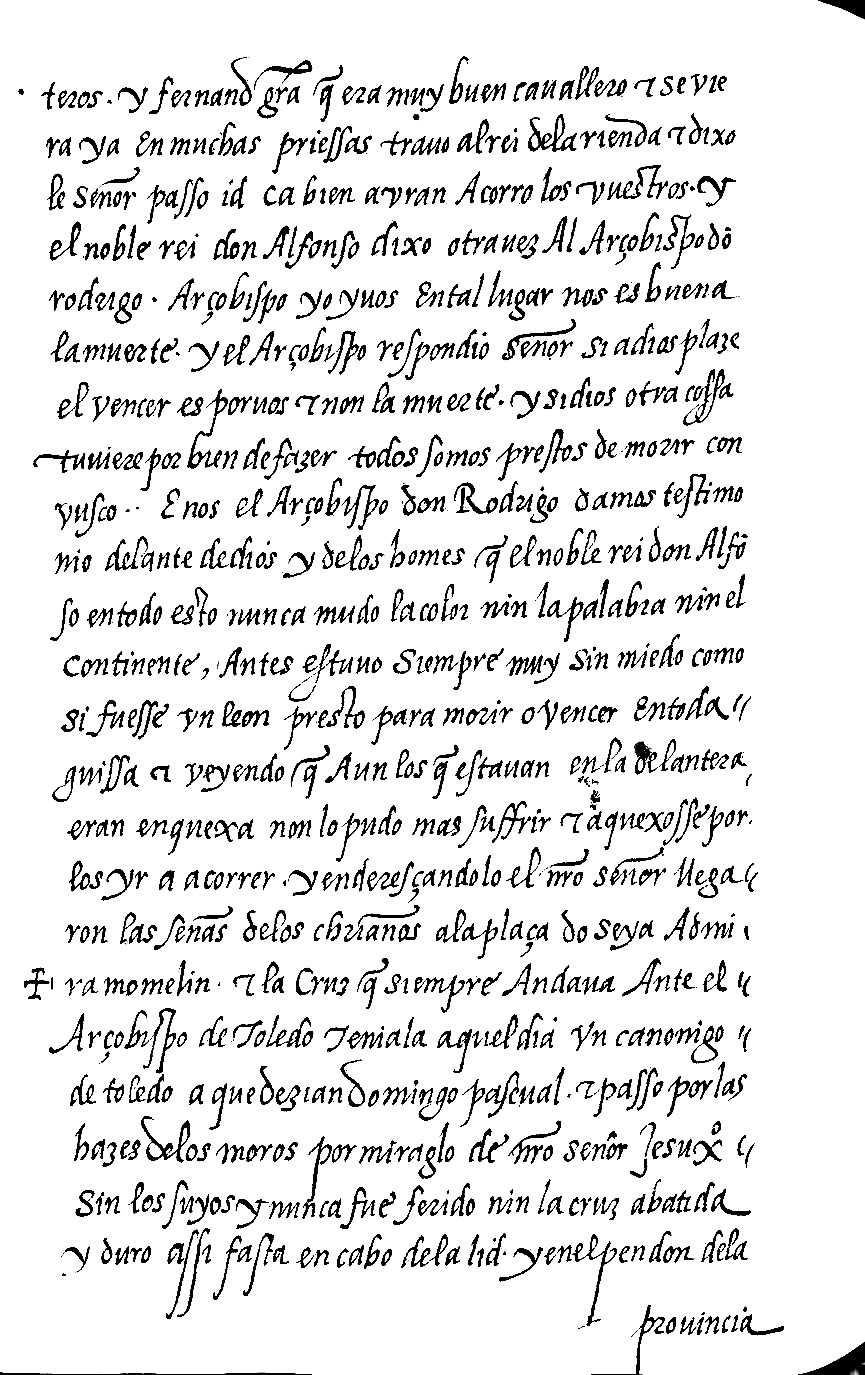 teros. y fernand grã q̃ era muy buen cauallero ⁊ se vie
ra ya En muchas priessas trauo al rei dela rienda ⁊ dixo
le Señor passo id ca bien avran Acorro los vuestros. y
el noble rei don Alfonso dixo otra uez Al Arçobispo dõ
rodrigo. Arçobispo yo y uos En tal lugar nos es buena
la muerte. y el Arçobispo respondio Señor si a dios plaze
el vencer es por uos ⁊ non la muerte. y si dios otra cossa
tuuiere por bien de fazer todos somos prestos de morir con
vusco.. E nos el Arçobispo don Rodrigo damos testimo
nio delante de dios y delos homes q̃ el noble rei don Alfõ
so en todo esto nunca mudo la color nin la palabra nin el
Continente, Antes estuuo Siempre muy sin miedo como
si fuesse vn leon presto para morir o vencer En toda //
guissa ⁊ veyendo q̃ Aun los q̃ estauan en la delantera,
eran en quexa non lo pudo mas suffrir ⁊ aquexosse por.
los yr a acorrer. y enderesçandolo el nr̃o señor llega //
ron las señas delos chrianos a la plaça do seya Admi
✠ ramomelin. ⁊ la Cruz q̃ siempre Andaua Ante el //
Arçobispo de Toledo Teniala aquel dia Vn canonigo //
de toledo a que dezian Domingo pascual. ⁊ passo por las
hazes delos moros por miraglo de nr̃o señor Jesuxº //
Sin los suyos y nunca fue ferido nin la cruz abatida
y duro assi fasta en cabo dela lid. y en el pendon dela
prouincia